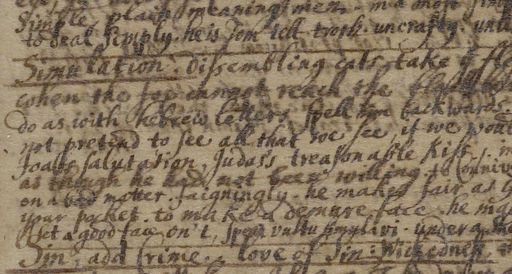 Simple plain meaning men. in a most
to deal simply. he is Tom tell troth. uncrafty. unsu
Simulation. dissembling cats take
when the fox cannot reach the
do as with hebrew letters spell 'em backwards.
not pretend to see all that we see if we would
Joabs salutation. Judas's treasonable kiss.
as though he had not been willing to conniv
on a bad matter. faigningly. he makes fair as
your pocket. to make a demure face. he
set a good face on't. spem vultu simulavi. under a
Sin. add crime. love of sin. wickednes